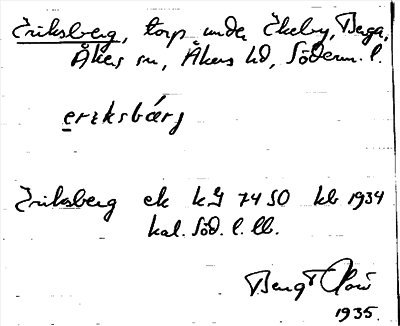 Eriksberg, torp under Ekeby, Berga,
Åkers sn, Åkers hd, Söderm. l.
eriksbárj
Eriksberg ek kg 7450 kb 1934
kal. Söd. l. ll.
Bengt
1935.